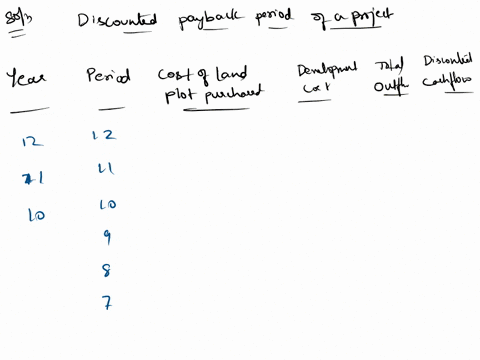 Soln Discounted payback period of a project
Year Period Cost of land plot purchased Development Cost Total Discounted Cashflow
12 12
11 11
10 10
9
8
7